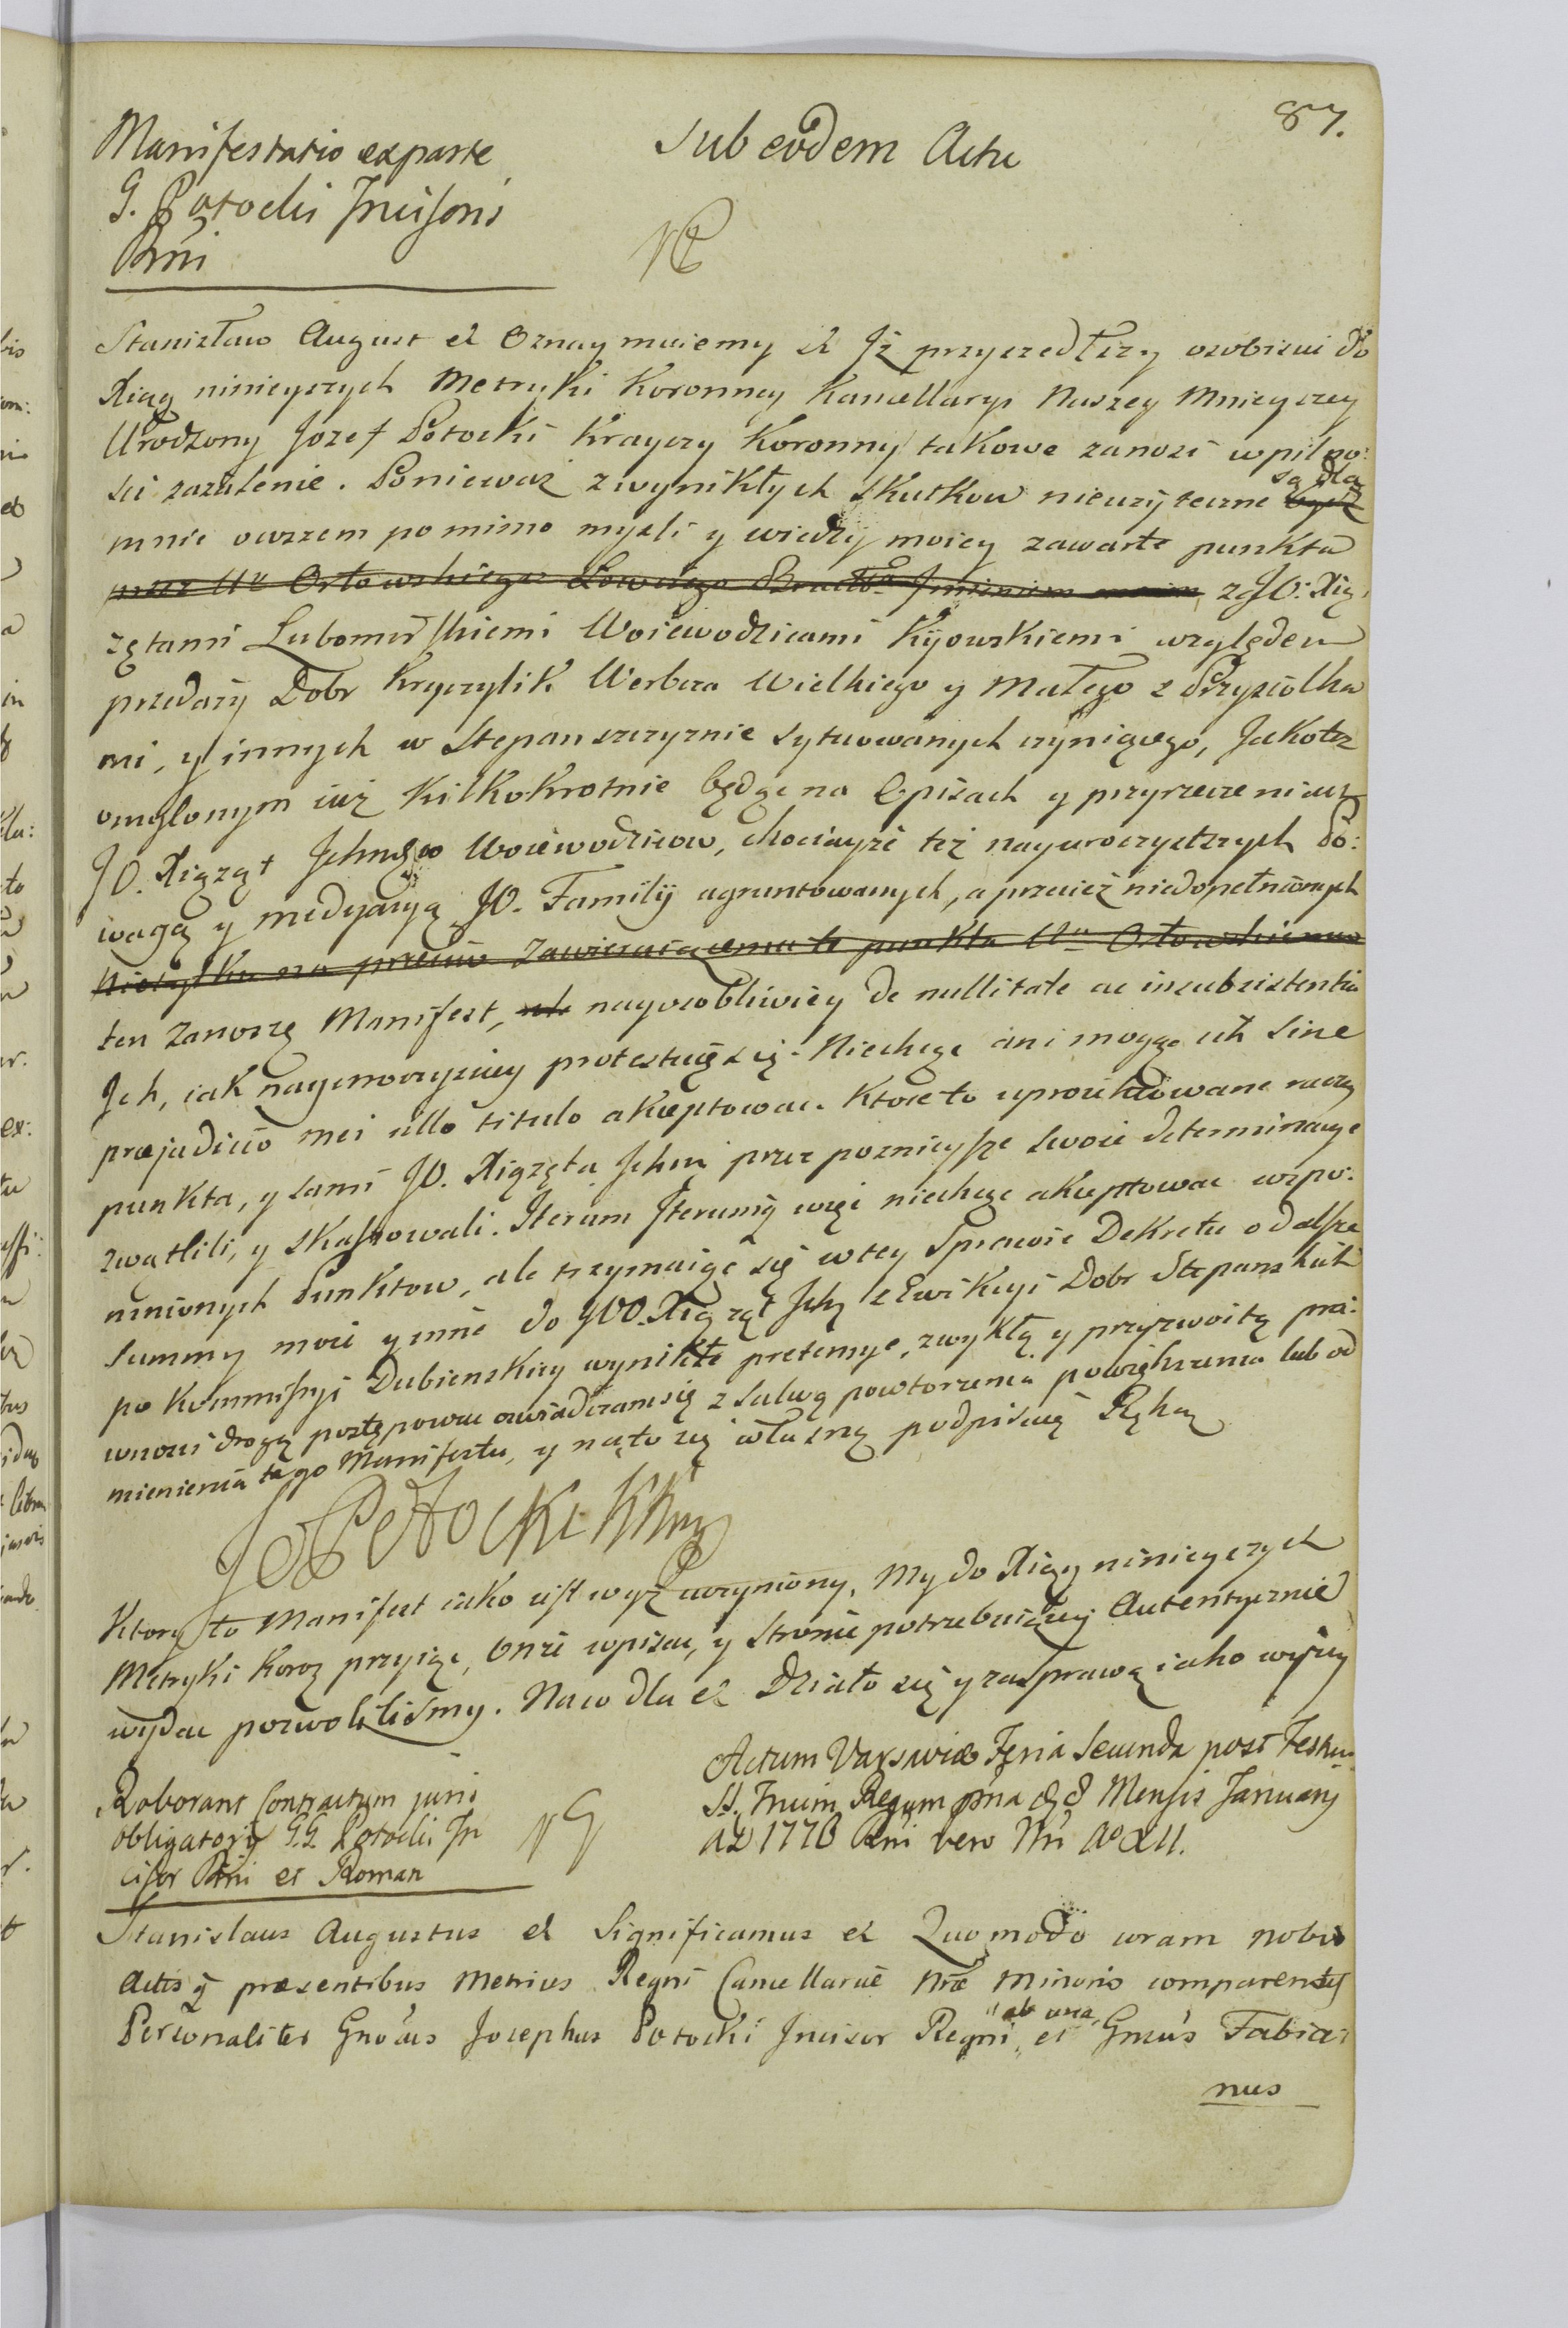 87.
Manifestatio ex parte
G. Potocki Incisoris
Rni
Sub eodem Actu
Stanisław August et Oznaymuiemy et Jż przyszedłszy osobiscie do
Xiąg ninieyszych Metryki Koronney Kancellaryi Naszey Mnieyszey
Urodzony Jozef Potocki Krayczy Koronny takowe zanosi w pilno:
sci zażalenie. Poniewaz z wynikłych skutkow nieużyteczne są dla
mnie owszem pomimo mysli y wiedzy moiey zawarte punkta
przez Ur Orłowskiego Łowczego Imieniem moim z JO: Xią
zętami Lubomirskiemi Woiewodzicami Kijowskiemi względem
przedaży Dobr Kryczylik Werbcza Wielkiego y Małego z Przysiołka
mi, y innych w Stepanszczyznie sytuowanych czyniącego, Jakoteż
omylonym iuż kilkokrotnie będąc na Opisach y przyrzeczeniach
JO. Xiążąt Ichmsciow Woiewodzicow, chociayże też nayuroczystszych Po:
wagą y medyacyą JO. Familij ugruntowanych, a przecież niedopełnionych
Nietylko na przeciw zawieraiącemu te punkta Ur Orłowskiemu
ten zanoszę Manifest, ale nayosobliwiey de nullitate ac insubsistentia
Ich, iak nayuroczysciey protestuię się. Niechcąc ani mogąc ich sine
præjudicio mei ullo titulo akceptowac. Ktore to uproiektowane rzeczy
punkta, y sami JO. Xiążęta Ichm przez poznieysze swoie determinacye
zwątlili, y skassowali. Iterum Iterumq więc niechcąc akceptowac wspo:
mnionych Punktow, ale trzymaiąc się w tey Sprawie Dekretu odalsze
Summy moie y inne do JWO. Xiążąt Ichm z Ewikcyi Dobr Stepanskich
po Kommissyi Dubienskiey wynikłe pretensye, zwykłą y przyzwoitą pra:
wnosci drogą postępowac oswiadczam się z Salwą powtorzenia powiększenia lub od
mienienia tego Manifestu, y na to się własną podpisuię Ręką
Jo Potocki KKor
Ktory to Manifest iako iest wyż uczyniony, My do Xiąg ninieyszych
Metryki Koroz przyiąc, Onże wpisac, y Stronie potrzebuiącey Autentycznie
wydac pozwoliliśmy. Na co dla et Działo się y za sprawą iako wyżey
Roborant Contractum juris
obligatorij G.G. Potocki In
cisor Rni et Roman
Actum Varsaviæ Feria Secunda post Festum
SS. Trium Regum pma d 8 Mensis January
AD 1776 Rni vero Nri Ao XII.
Stanislaus Augustus et Significamus et Quomodo coram nobis
Actis q præsentibus Metrices Regni Cancellariæ Nræ Minoris comparentes
Personaliter Gnosus Josephus Potocki Incisor Regni ab una, et Gnsus Fabia:
nus